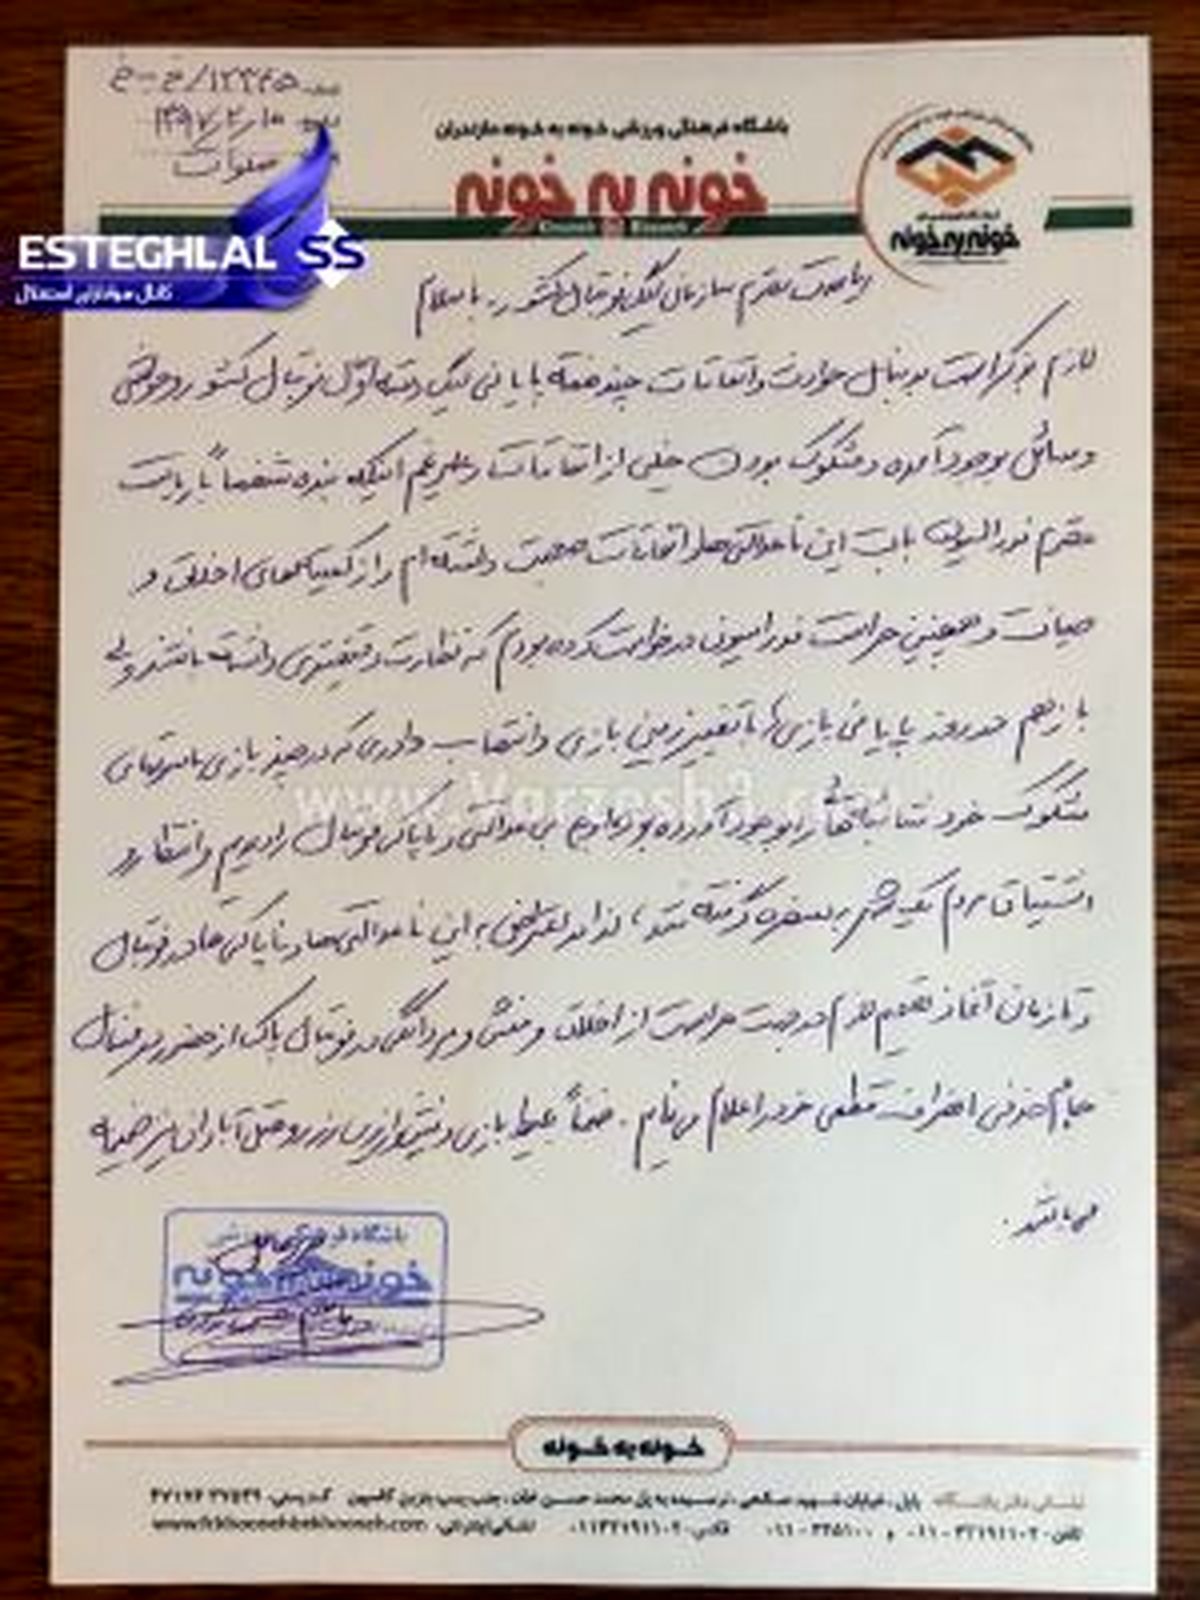 شماره ۱۲۳۴۵/خ-خ
تاریخ ۱۳۹۷/۲/۱۰
صلوات
باشگاه فرهنگی ورزشی خونه به خونه مازندران
خونه به خونه
Khooneh Be Khooneh
خونه به خونه
ESTEGHLAL SS
کانال هواداران استقلال
ریاست محترم سازمان لیگ فوتبال کشور . با سلام
لازم بذکر است بدنبال حوادث و اتفاقات چند هفته پایانی لیگ دسته اول فوتبال کشور و حواشی
و مسائل بوجود آمده و مشکوک بودن خیلی از اتفاقات و علیرغم اینکه بنده شخصاً با ریاست
محترم فدراسیون بابت این ناعدالتی‌ها و اتفاقات صحبت داشته ام و از کمیته‌های اخلاق و
صیانت و همچنین حراست فدراسیون درخواست کرده بودم که نظارت دقیقتری داشته باشند ولی
باز هم در روند پایانی بازی‌ها با تغییر زمین بازی و انتخاب داوری که در چند بازی با سوتهای
مشکوک خود نتایج را بوجود آورده بود باز هم بی عدالتی و ناپاکی فوتبال را دیدیم و انتظار و
اشتیاق مردم یک شهر به سخره گرفته شد، لذا در اعتراض به این ناعدالتی‌ها و ناپاکی‌ها در فوتبال
و تا زمان آغاز تصمیم لازم در جهت حراست از اخلاق و منش و مردانگی در فوتبال پاک از حضور در فینال
جام حذفی انصراف قطعی خود را اعلام می‌نمایم . ضمناً بلیط بازی و پروازی آبادان نیز ضمیمه
می‌باشد .
باشگاه فرهنگی ورزشی
خونه به خونه
www.Varzesh3.com
خونه به خونه
نشانی دفتر باشگاه: بابل، خیابان شهید صالحی، نرسیده به پل محمد حسن خان، جنب پمپ بنزین کاسپین کدپستی: ۴۷۱۷۶۳۷۵۳۹
تلفن: ۰۱۱-۳۲۱۹۱۱۰۲ و ۰۱۱-۳۲۵۱۰۰ فکس: ۰۱۱۳۲۱۹۱۱۰۲ نشانی اینترنتی: www.fckhoonehbekhooneh.com